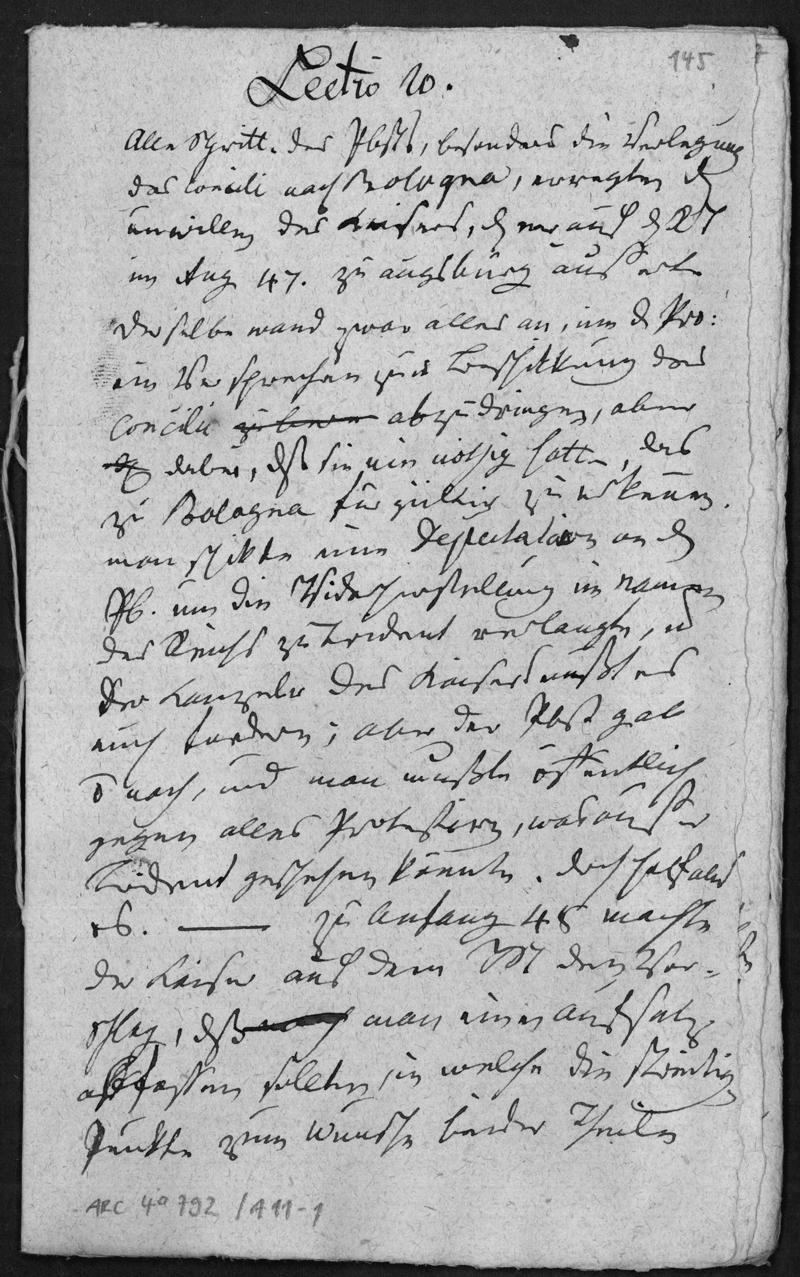 145
Lectio 10.
Alle Schritt. des Pbsts, besonders die Verlegung
des Concili nach Bologna, erregten d
unwillen des Kaisers, d er auf d RT
im Aug 47. zu augsburg äusserte
derselbe wand zwar alles an, um d Pro:
ein Versprechen zur Beschikkung des
Concilii abzudringen, aber
dabei, dß sie nie nöthig hatten, das
zu Bologna für gültig zu erkennen.
man schikte eine Deputation an d
Pb. um die Widerherstellung im namen
des Reichs zu Trident verlangte, u
der Kanzler des Kaisers mußt es
auch fordern; aber der Pbst gab
nach, und man mußte öffentlich
gegen alles Protestiren, was ausser
Trident geschehen könnte. doch half all
es. — zu Anfang 48 machte
der Kaiser auf dem RT den Vor-
schlag, dß man einen Aufsatz
abfassen sollte, in welche die streitig
Punkte zum Wunsche beider Theile
ARC 4° 792 / A 11-1